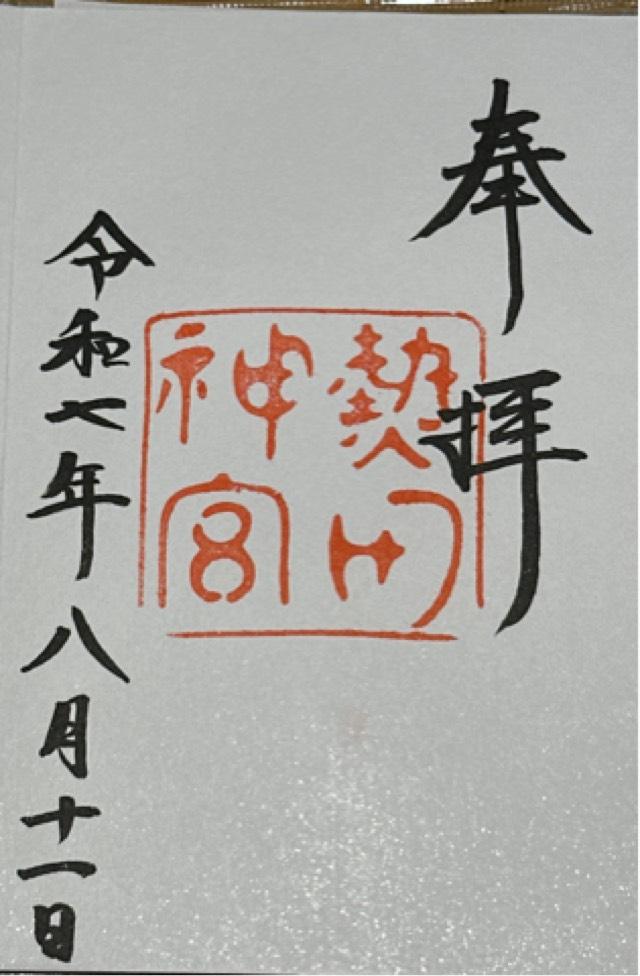 奉拝
熱田
神宮
令和七年八月十一日